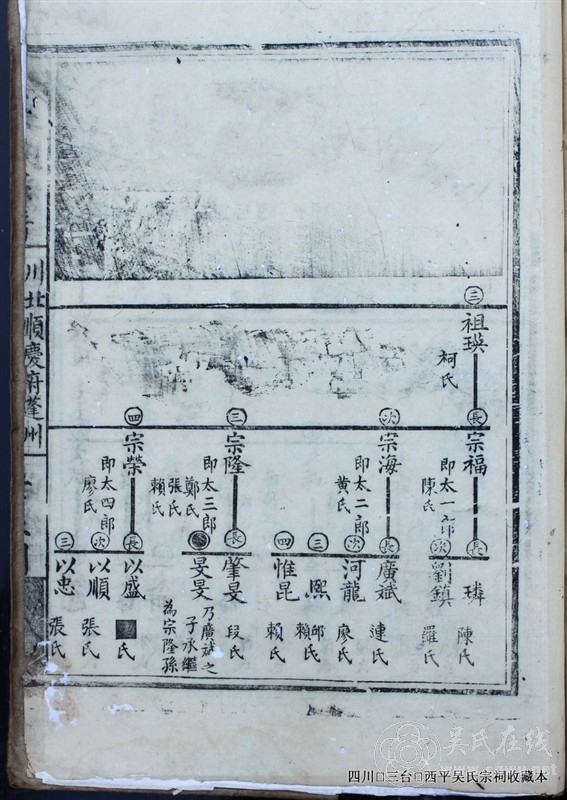 三
祖瑛
柯氏
長
宗福
即太一郎
陳氏
次
宗海
即太二郎
黄氏
三
宗隆
即太三郎
鄭氏
張氏
賴氏
四
宗榮
即太四郎
廖氏
長
璘
陳氏
次
劉鎮
羅氏
長
廣斌
連氏
次
河龍
廖氏
三
熙
邱氏
賴氏
四
惟昆
賴氏
長
肇旻
段氏
旻旻
乃廣斌之
子承繼
為宗隆孫
長
以盛
氏
次
以順
張氏
三
以忠
張氏
川北順慶府蓬州
吴氏在线
四川□三台□西平吴氏宗祠收藏本